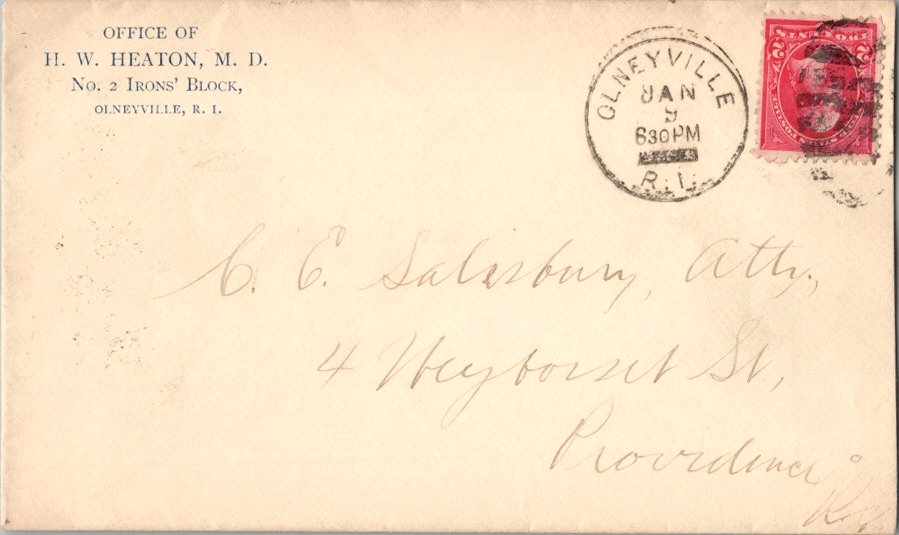 OFFICE OF
H. W. HEATON, M. D.
No. 2 IRONS' BLOCK,
OLNEYVILLE, R. I.
OLNEYVILLE
JAN
9
630PM
R.I.
2 2
C. E. Salisbury, Atty.,
4 Weybosset St.,
Providence
R.I.